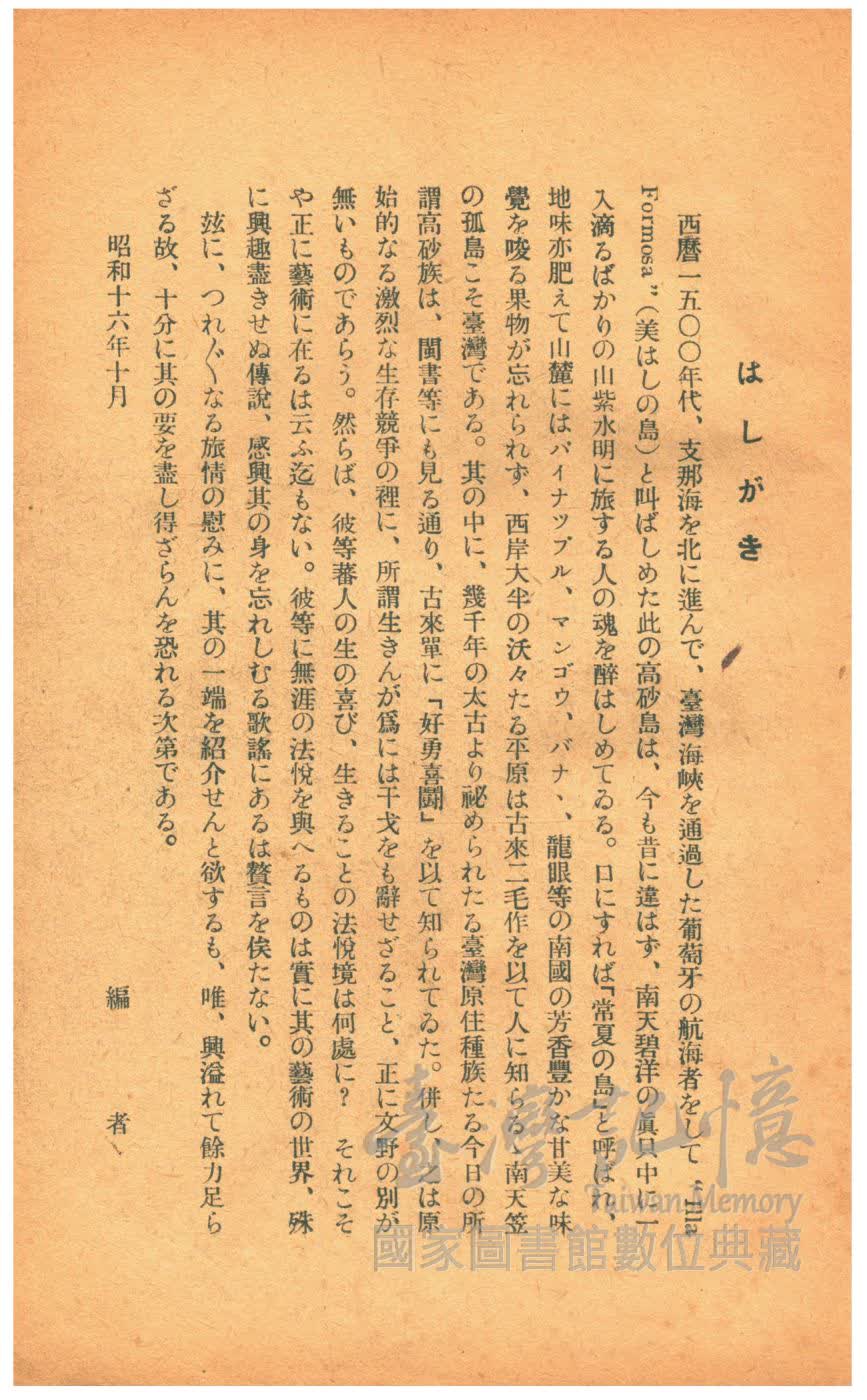 はしがき
西曆一五〇〇年代、支那海を北に進んで、臺灣海峽を通過した葡萄牙の航海者をして“Illa
Formosa”（美はしの島）と叫ばしめた此の高砂島は、今も昔に違はず、南天碧洋の眞只中に一
入滴るばかりの山紫水明に旅する人の魂を醉はしめてゐる。口にすれば「常夏の島」と呼ばれ、
地味亦肥えて山麓にはパイナツプル、マンゴウ、バナヽ、龍眼等の南國の芳香豐かな甘美な味
覺を唆る果物が忘れられず、西岸大半の沃々たる平原は古來二毛作を以て人に知らるゝ南天笠
の孤島こそ臺灣である。其の中に、幾千年の太古より祕められたる臺灣原住種族たる今日の所
謂高砂族は、閩書等にも見る通り、古來單に「好勇喜鬪」を以て知られてゐた。併し、之は原
始的なる激烈な生存競爭の裡に、所謂生きんが爲には干戈をも辭せざること、正に文野の別が
無いものであらう。然らば、彼等蕃人の生の喜び、生きることの法悅境は何處に？　それこそ
や正に藝術に在るは云ふ迄もない。彼等に無涯の法悅を與へるものは實に其の藝術の世界、殊
に興趣盡きせぬ傳說、感興其の身を忘れしむる歌謠にあるは贅言を俟たない。
玆に、つれ〴〵なる旅情の慰みに、其の一端を紹介せんと欲するも、唯、興溢れて餘力足ら
ざる故、十分に其の要を盡し得ざらんを恐れる次第である。
昭和十六年十月
編者
臺灣記憶
Taiwan Memory
國家圖書館數位典藏